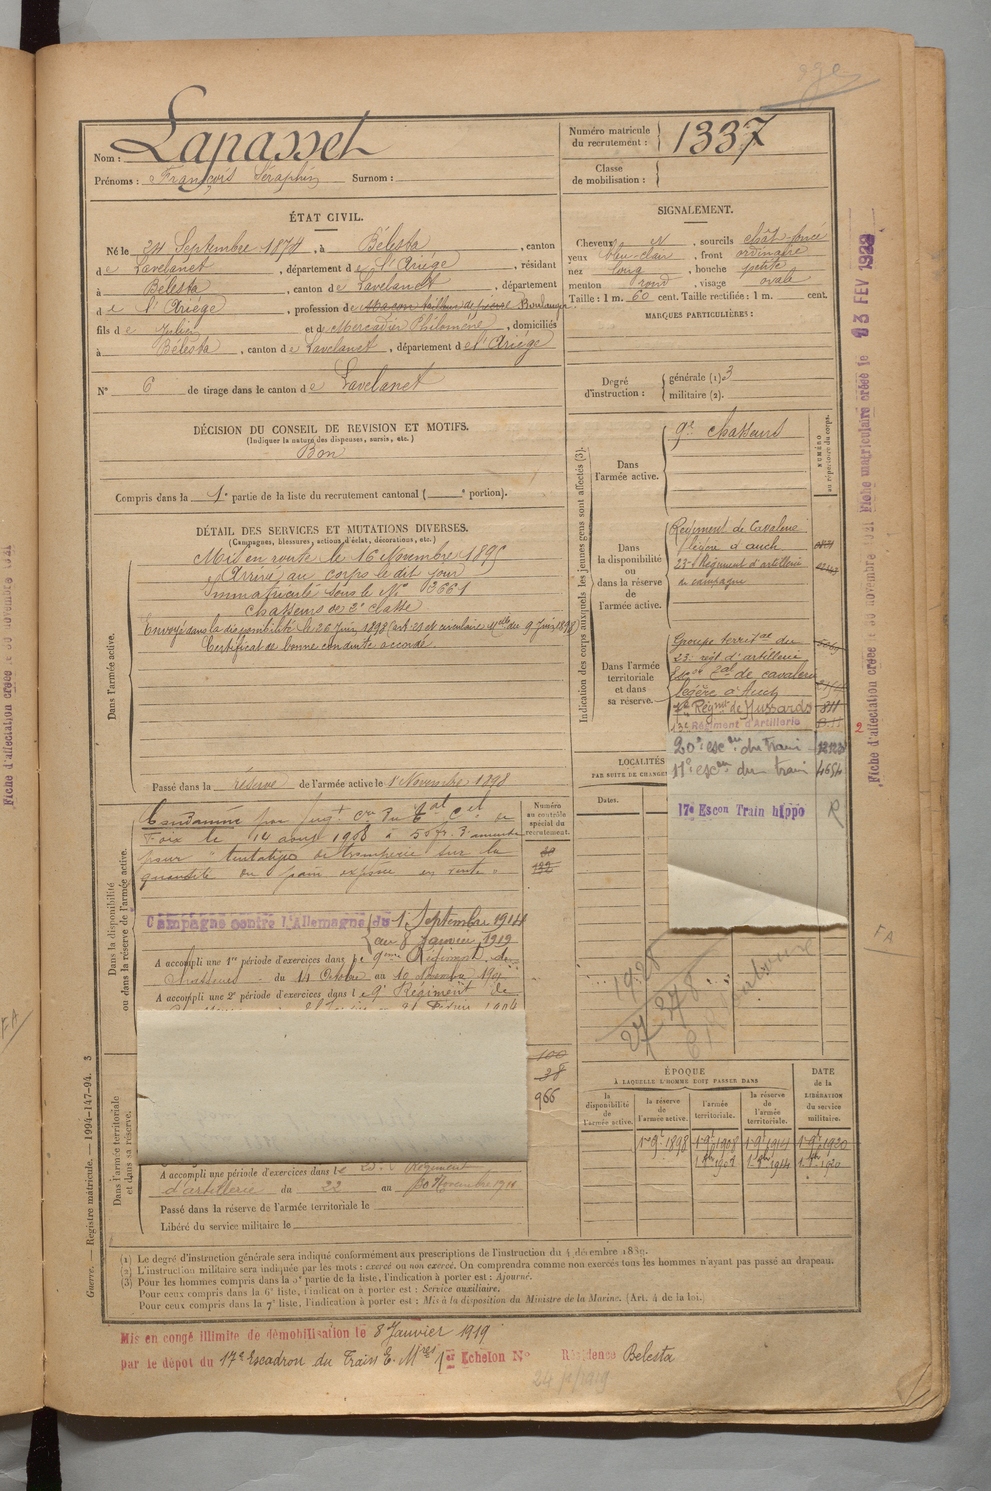 Nom : Lapasset
Prénoms : François Séraphin Surnom :
Numéro matricule du recrutement : 1337
Classe de mobilisation :
ÉTAT CIVIL.
Né le 24 Septembre 1874, à Bélesta, canton
de Lavelanet, département de l'Ariège, résidant
à Bélesta, canton de Lavelanet, département
de l'Ariège, profession de Maçon tailleur de pierre Boulanger
fils de Julien et de Mercadier Philomène, domiciliés
à Bélesta, canton de Lavelanet, département de l'Ariège
N° 6 de tirage dans le canton de Lavelanet
SIGNALEMENT.
Cheveux N, sourcils chât-foncé
yeux bleu-clair, front ordinaire
nez long, bouche petite
menton rond, visage ovale
Taille : 1 m. 60 cent. Taille rectifiée : 1 m. cent.
MARQUES PARTICULIÈRES :
Degré d'instruction : générale (1) 3
militaire (2).
DÉCISION DU CONSEIL DE REVISION ET MOTIFS.
(Indiquer la nature des dispenses, sursis, etc.)
Bon
Compris dans la 1e partie de la liste du recrutement cantonal ( e portion).
DÉTAIL DES SERVICES ET MUTATIONS DIVERSES.
(Campagnes, blessures, actions d'éclat, décorations, etc.)
Dans l'armée active.
Mis en route le 16 Novembre 1895
Arrivé au corps le dit jour
Immatriculé sous le N° 3661
Chasseurs de 2e classe
Envoyé dans la disponibilité le 26 Juin 1898 circulaire du 9 Juin 1898
Certificat de bonne conduite accordé
Passé dans la réserve de l'armée active le 1 Novembre 1898
Indication des corps auxquels les jeunes gens sont affectés (3).
NUMÉRO au répertoire du corps.
Dans l'armée active.
9e chasseurs
Dans la disponibilité ou dans la réserve de l'armée active.
Régiment de Cavalerie
légère d'Auch
23e Régiment d'artillerie
de campagne
Dans l'armée territoriale et dans sa réserve.
Groupe territal du
23e régt d'artillerie
de cavalerie
légère à Auch
Régmt de Hussards 811
Régiment d'Artillerie
20e escon du train
17e escon du train 4654
17e Escon Train hippo R
LOCALITÉS
PAR SUITE DE CHANGE
Dates.
Dans la disponibilité ou dans la réserve de l'armée active.
Numéro au contrôle spécial du recrutement.
Condamné par Jugt Con du
Foix le 14 août 1908 à 50 fr. d'amende
pour tentative de tromperie sur la
quantité de pain exposé en vente.
Campagne contre l'Allemagne du 1 Septembre 1914
au 8 Janvier 1919
A accompli une 1re période d'exercices dans le 9ème Régiment de
Chasseurs du 14 Octobre au 10 Novembre 1901
A accompli une 2e période d'exercices dans le 9e Régiment de
100
38
966
Dans l'armée territoriale et dans sa réserve.
A accompli une période d'exercices dans le 23e Régiment
d'artillerie du 22 au 30 Novembre 1910
Passé dans la réserve de l'armée territoriale le
Libéré du service militaire le
1928
27 278
ÉPOQUE
À LAQUELLE L'HOMME DOIT PASSER DANS
la disponibilité de l'armée active.
la réserve de l'armée active.
l'armée territoriale.
la réserve de l'armée territoriale.
DATE de la LIBÉRATION du service militaire.
1er 9bre 1898 1er 9bre 1908 1er 9bre 1914 1er 9bre 1920
(1) Le degré d'instruction générale sera indiqué conformément aux prescriptions de l'instruction du 4 décembre 1889.
(2) L'instruction militaire sera indiquée par les mots : exercé ou non exercé. On comprendra comme non exercés tous les hommes n'ayant pas passé au drapeau.
(3) Pour les hommes compris dans la 5e partie de la liste, l'indication à porter est : Ajourné.
Pour ceux compris dans la 6e liste, l'indication à porter est : Service auxiliaire.
Pour ceux compris dans la 7e liste, l'indication à porter est : Mis à la disposition du Ministre de la Marine. (Art. 4 de la loi.)
Mis en congé illimité de démobilisation le 8 Janvier 1919
par le dépôt du 17e Escadron du Train E. Mres 1er Echelon N° Résidence Belesta
Guerre. — Registre matricule. — 1994-147-94. 3
Fiche d'affectation créée le 30 novembre 1921 Fiche matriculaire créée le 13 FEV 1929
2
FA
FA
Fiche d'affectation créée le 30 novembre 1921